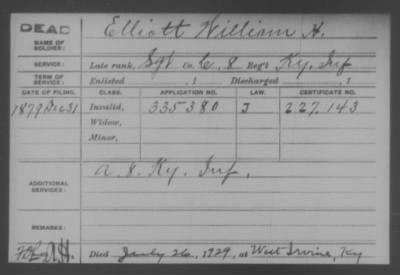 DEAD
NAME OF SOLDIER: Elliott William H.
SERVICE: Late rank, Sgt Co. C, 8 Reg't Ky. Inf
TERM OF SERVICE: Enlisted , 1 Discharged , 1
DATE OF FILING. CLASS. APPLICATION NO. LAW. CERTIFICATE NO.
1879 Dec 31 Invalid, 335380 J 227.143
Widow,
Minor,
ADDITIONAL SERVICES: A. 8. Ky. Inf.
REMARKS:
Died 26, 1929, at West Irvine, Ky